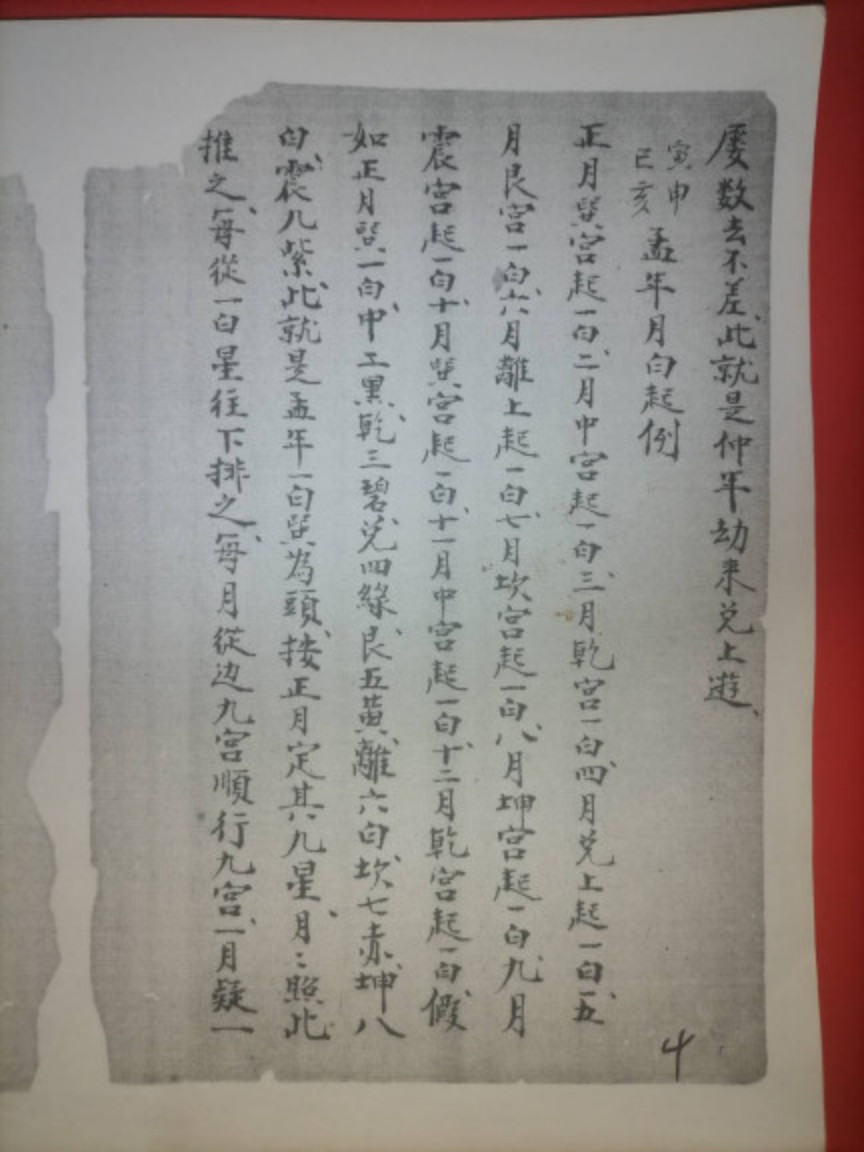 屡数去不差、此就是仲年劫来兑上遊、
寅申
巳亥 孟年月白起例
正月巽宫起一白、二月中宫起一白、三月乾宫一白、四月兑上起一白、五
月艮宫一白、六月離上起一白、七月坎宫起一白、八月坤宫起一白、九月
震宫起一白、十月巽宫起一白、十一月中宫起一白、十二月乾宫起一白、假
如正月巽一白、中二黑、乾三碧、兑四綠、艮五黄、離六白、坎七赤、坤八
白、震九紫、此就是孟年一白巽為頭、按正月定其九星、月：照此
推之、每從一白星往下排之、每月從边九宫順行九宫、一月疑一
4